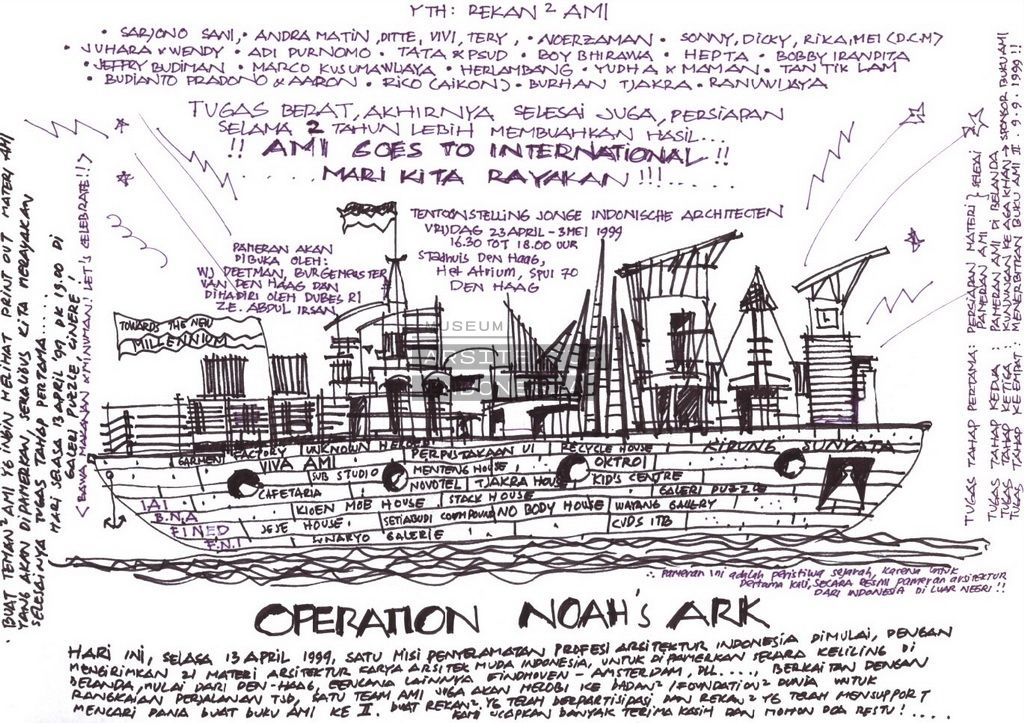 YTH: REKAN² AMI
• SARJONO SANI, • ANDRA MATIN, DITTE, VIVI, TERY, • NOERZAMAN • SONNY, DICKY, RIKA, MEI (D.C.M)
• JUHARA & WENDY • ADI PURNOMO • TATA & PSUD • BOY BHIRAWA • HEPTA • BOBBY IRANDITA
• JEFFRY BUDIMAN • MARCO KUSUMAWIJAYA • HERLAMBANG • YUDHA & MAMAN • TAN TIK LAM
• BUDIANTO PRADONO & AARON • RICO (AIKON) • BURHAN TJAKRA • RANUWIJAYA
TUGAS BERAT, AKHIRNYA SELESAI JUGA, PERSIAPAN
SELAMA 2 TAHUN LEBIH MEMBUAHKAN HASIL...
!! AMI GOES TO INTERNATIONAL !!
..... MARI KITA RAYAKAN !!! .....
TENTOONSTELLING JONGE INDONISCHE ARCHITECTEN
VRIJDAG 23 APRIL - 3 MEI 1999
16.30 TOT 18.00 UUR
STADHUIS DEN HAAG,
HET ATRIUM, SPUI 70
DEN HAAG
PAMERAN AKAN
DIBUKA OLEH:
WJ DEETMAN, BURGEMEISTER
VAN DEN HAAG DAN
DIHADIRI OLEH DUBES RI
ZE. ABDUL IRSAN.
TOWARDS THE NEW
MILLENNIUM
MUSEUM
ARSITEKTUR
INDONESIA
GARMENT FACTORY UNKNOWN HEROES PERPUSTAKAAN UI RECYCLE HOUSE KIDUNG SUNYATA
VIVA AMI MENTENG HOUSE OKTROI
SUB STUDIO NOVOTEL TJAKRA HOUSE KID'S CENTRE
CAFETARIA STACK HOUSE GALERI PUZZLE
KIOEN MOB HOUSE NO BODY HOUSE WAYANG GALLERY
JESE HOUSE SETIABUDI COMPOUND CUDS ITB
SUNARYO GALERIE
IAI
B.N.A
FINED
P.N.I
∴ Pameran ini adalah peristiwa sejarah, karena untuk
pertama kali, SECARA RESMI pameran arsitektur
DARI INDONESIA DI LUAR NEGRI !!
OPERATION NOAH'S ARK
HARI INI, SELASA 13 APRIL 1999, SATU MISI PENYELAMATAN PROFESI ARSITEKTUR INDONESIA DIMULAI, DENGAN
MENGIRIMKAN 21 MATERI ARSITEKTUR KARYA ARSITEK MUDA INDONESIA, UNTUK DIPAMERKAN SECARA KELILING DI
BELANDA, MULAI DARI DEN-HAAG, RENCANA LAINNYA EINDHOVEN - AMSTERDAM, DLL...., BERKAITAN DENGAN
RANGKAIAN PERJALANAN TSB, SATU TEAM AMI JUGA AKAN MELOBI KE BADAN²/FOUNDATION² DUNIA UNTUK
MENCARI DANA BUAT BUKU AMI KE II. BUAT REKAN², YG TELAH BERPARTISIPASI DAN REKAN² YG TELAH MENSUPPORT
KAMI UCAPKAN BANYAK TERIMA KASIH DAN MOHON DOA RESTU! ....
• BUAT TEMAN² AMI YG INGIN MELIHAT PRINT OUT MATERI AMI
YANG AKAN DIPAMERKAN, SEKALIGUS KITA MERAYAKAN
SELESAINYA TUGAS TAHAP PERTAMA......
HARI SELASA 13 APRIL '99 PK 19.00 DI
GALERI PUZZLE CINERE!
< BAWA MAKANAN & MINUMAN! LET'S CELEBRATE!! >
TUGAS TAHAP PERTAMA: PERSIAPAN MATERI } SELESAI
PAMERAN AMI
TUGAS TAHAP KEDUA: PAMERAN AMI DI BELANDA
TUGAS TAHAP KETIGA: KUNJUNGAN KE AGA KHAN → SPONSOR BUKU AMI
TUGAS TAHAP KEEMPAT: MENERBITKAN BUKU AMI II. 9.9.1999!!